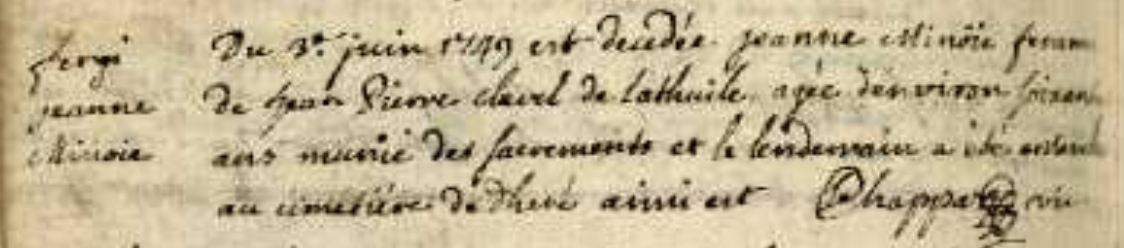 jeanne
Minoie
Du 3e juin 1749 est decedée jeanne Minoie fem
de jean Pierre clavel de Lathuile agée denviron soixan
ans munie des sacrements et le lendemain a été enter
au cimetiere de ainsi est Chappa vic